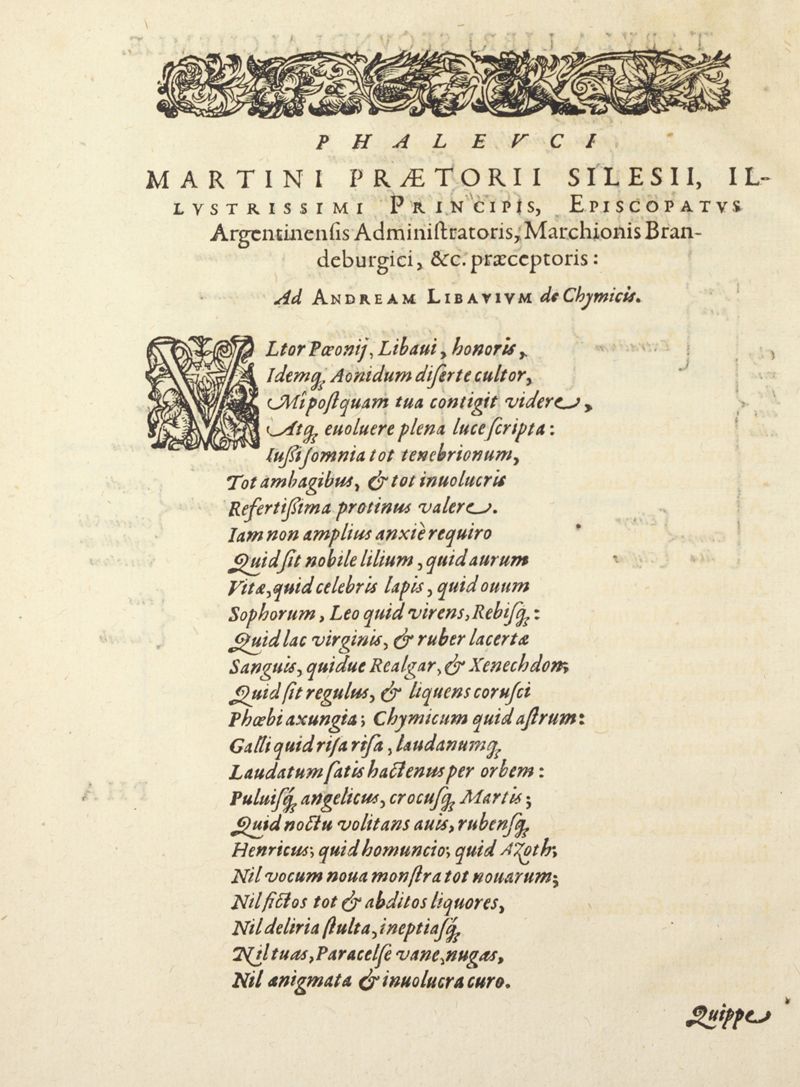 PHALEVCI
MARTINI PRÆTORII SILESII, IL-
LVSTRISSIMI PRINCIPIS, EPISCOPATVS
Argentinenſis Adminiſtratoris, Marchionis Bran-
deburgici, &c. præceptoris:
Ad ANDREAM LIBAVIVM de Chymicis.
VLtor Pæonij, Libaui, honoris,
Idemq́; Aonidum diſerte cultor,
Mî poſtquam tua contigit videre,
Atq; euoluere plena luce ſcripta:
Iußi ſomnia tot tenebrionum,
Tot ambagibus, & tot inuolucris
Refertißima protinus valere.
Iam non amplius anxiè requiro
Quid ſit nobile lilium, quid aurum
Vitæ, quid celebris lapis, quid ouum
Sophorum, Leo quid virens, Rebiſq;:
Quid lac virginis, & ruber lacertæ
Sanguis, quidue Realgar, & Xenechdon;
Quid ſit regulus, & liquens coruſci
Phœbi axungia; Chymicum quid aſtrum:
Galli quid riſa riſa, laudanumq;
Laudatum ſatis hactenus per orbem:
Puluiſq́; angelicus, crocuſq; Martis;
Quid noctu volitans auis, rubenſq;
Henricus; quid homuncio; quid Azoth;
Nil vocum noua monſtra tot nouarum;
Nil fictos tot & abditos liquores,
Nil deliria ſtulta, ineptiaſq́;
Nil tuas, Paracelſe vane, nugas,
Nil ænigmata & inuolucra curo.
Quippe